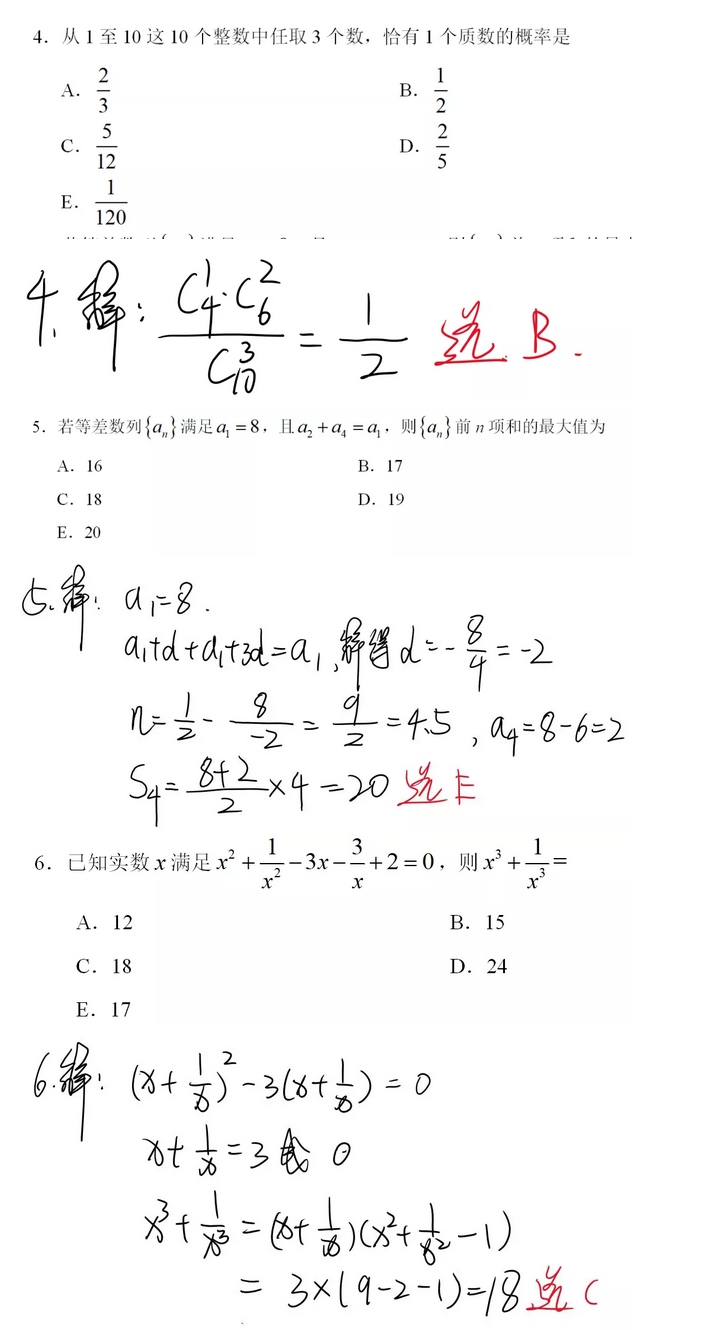 4. 从 1 至 10 这 10 个整数中任取 3 个数，恰有 1 个质数的概率是
A. 2/3 B. 1/2
C. 5/12 D. 2/5
E. 1/120
4. 解: (C₄¹·C₆²)/C₁₀³ = 1/2 选 B.
5. 若等差数列{aₙ}满足a₁=8，且a₂+a₄=a₁，则{aₙ}前 n 项和的最大值为
A. 16 B. 17
C. 18 D. 19
E. 20
5. 解: a₁=8.
a₁+d+a₁+3d=a₁, 解得 d=-8/4=-2
n=1/2-8/(-2)=9/2=4.5, a₄=8-6=2
S₄=(8+2)/2×4=20 选 E
6. 已知实数 x 满足 x²+1/x²-3x-3/x+2=0，则 x³+1/x³=
A. 12 B. 15
C. 18 D. 24
E. 17
6. 解: (x+1/x)²-3(x+1/x)=0
x+1/x=3 或 0
x³+1/x³=(x+1/x)(x²+1/x²-1)
=3×(9-2-1)=18 选 C